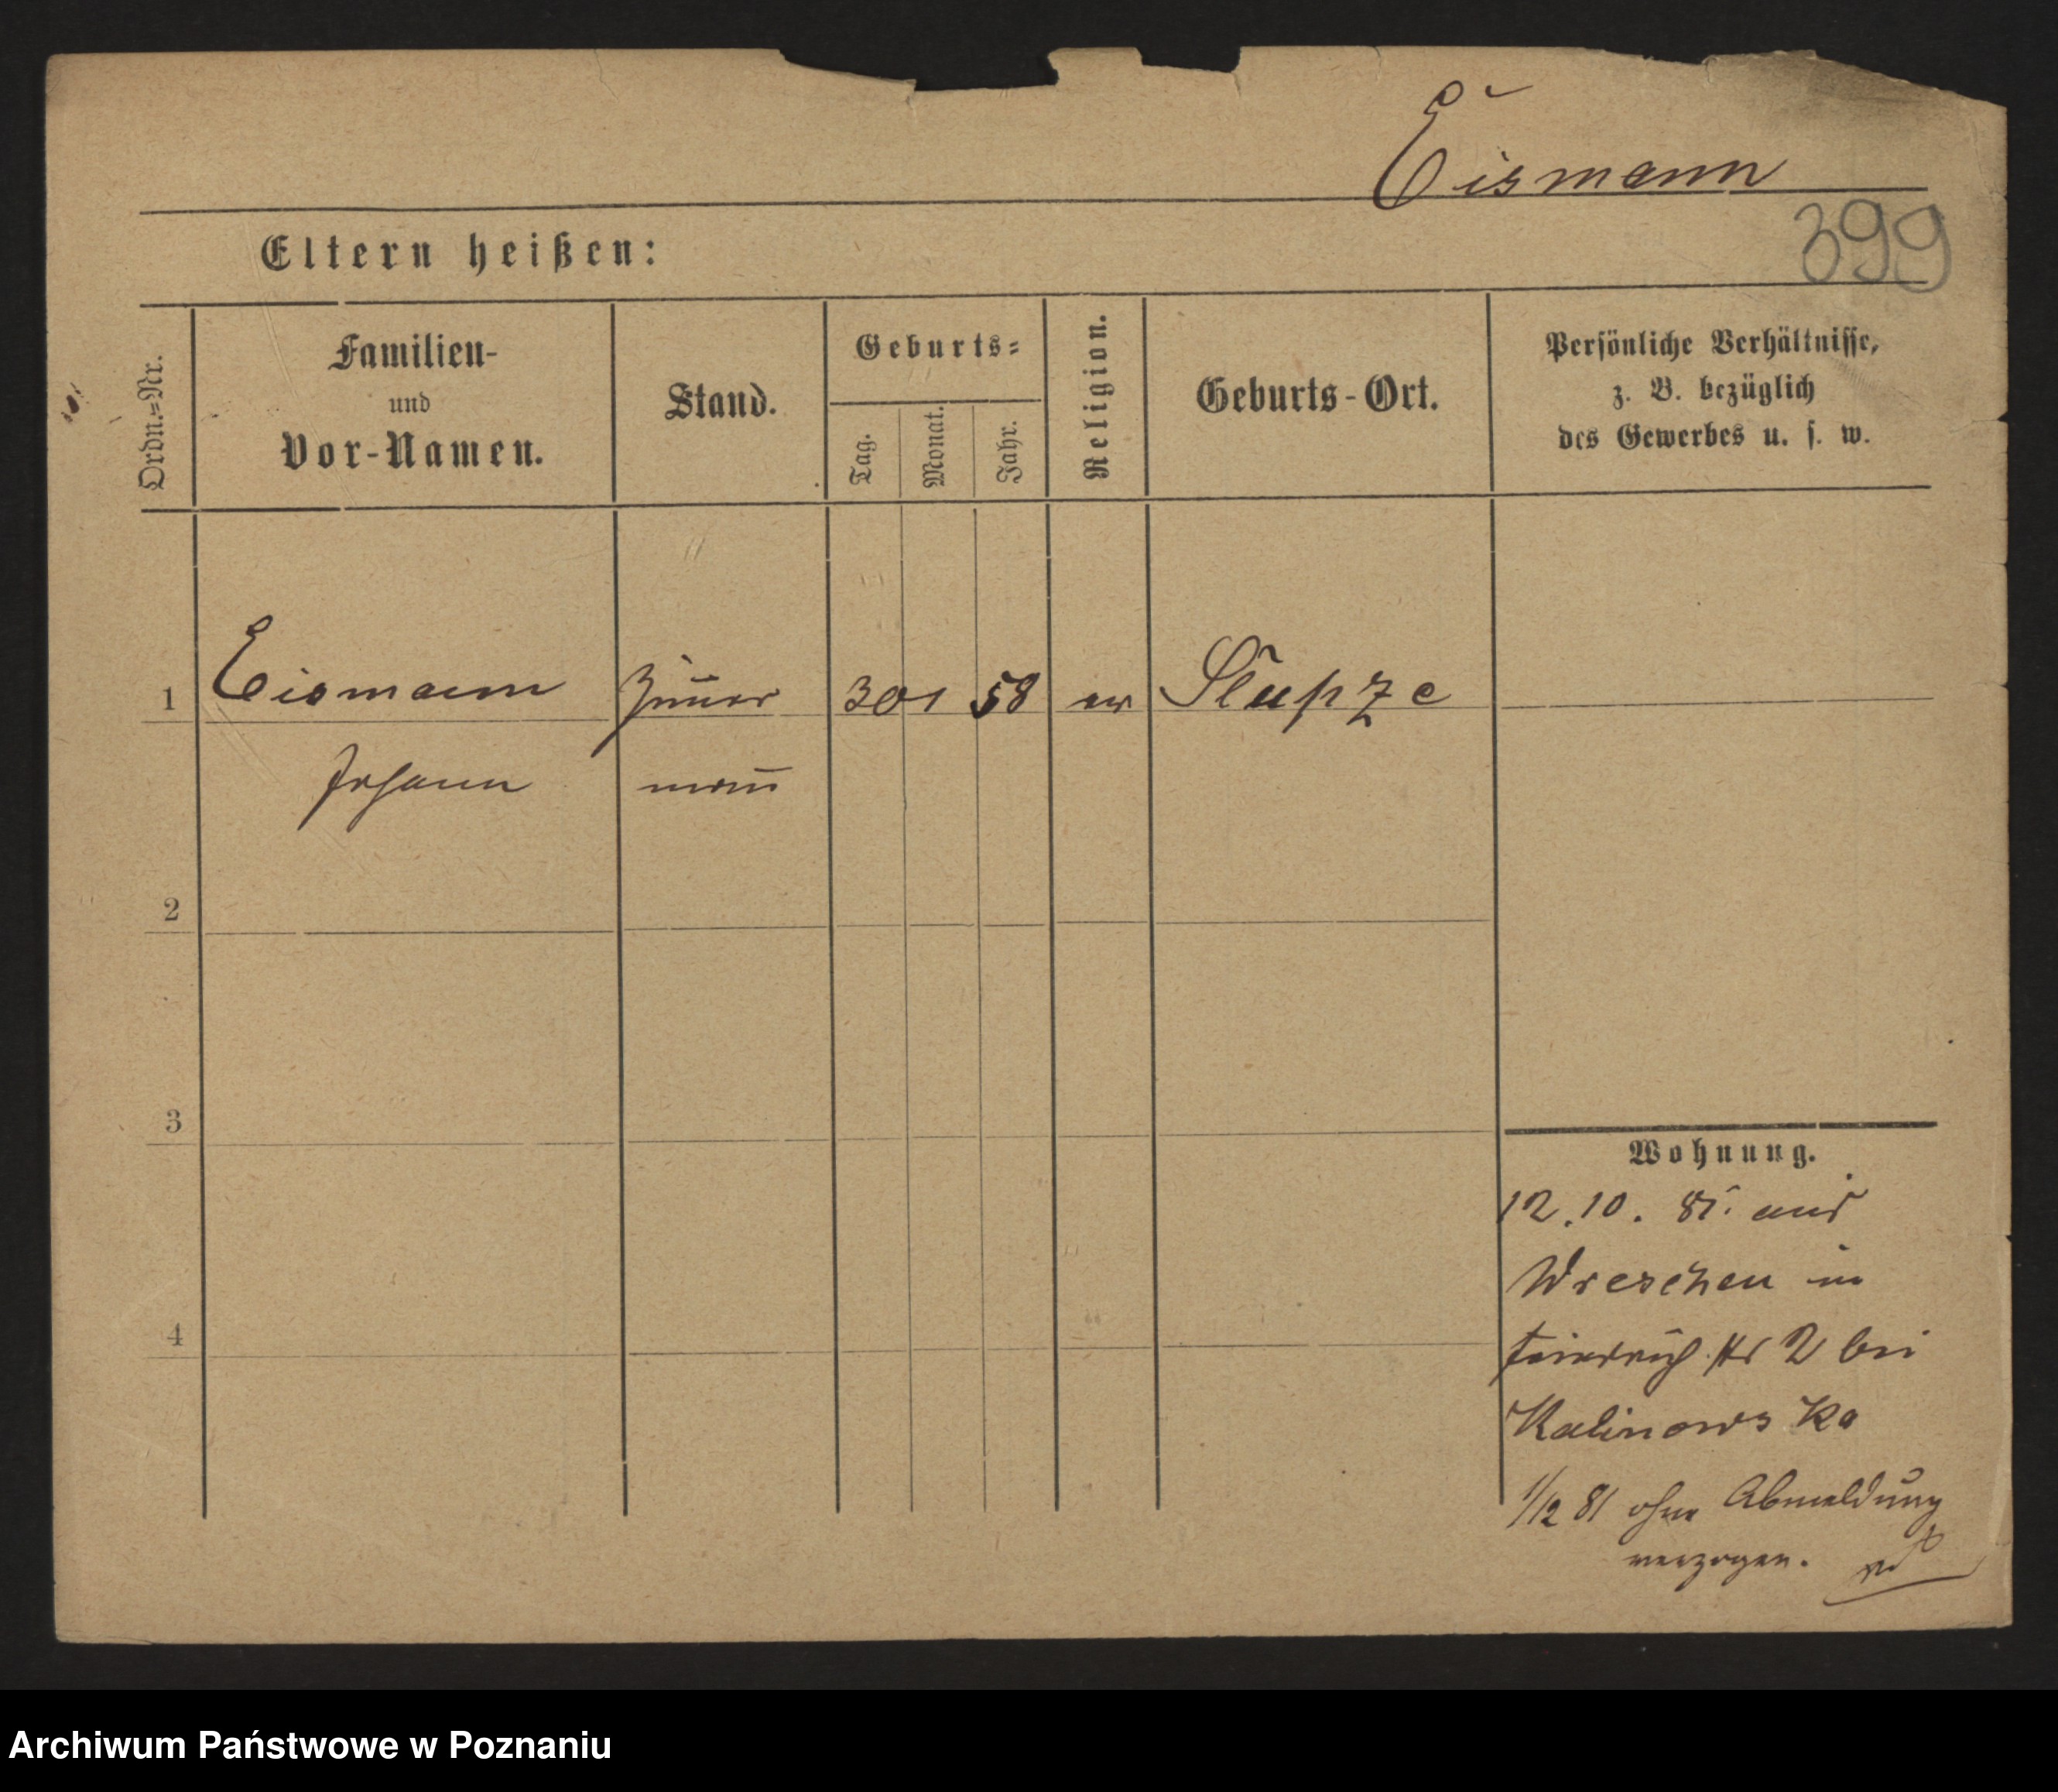 Eismann
399
Eltern heißen:
Ordn.=Nr.
Familien-
und
Vor-Namen.
Stand.
Geburts=
Tag.
Monat.
Jahr.
Religion.
Geburts-Ort.
Persönliche Verhältnisse,
z. B. bezüglich
des Gewerbes u. s. w.
1 Eismann Zim̄er 30 1 58 ev Slupze
Johann man̄
2
3
4
Wohnung.
12.10. 81. aus
Wreschen in
Friedrich str 2 bei
Kalinowska
1/12 81 ohne Abmeldung
verzogen.
Archiwum Państwowe w Poznaniu